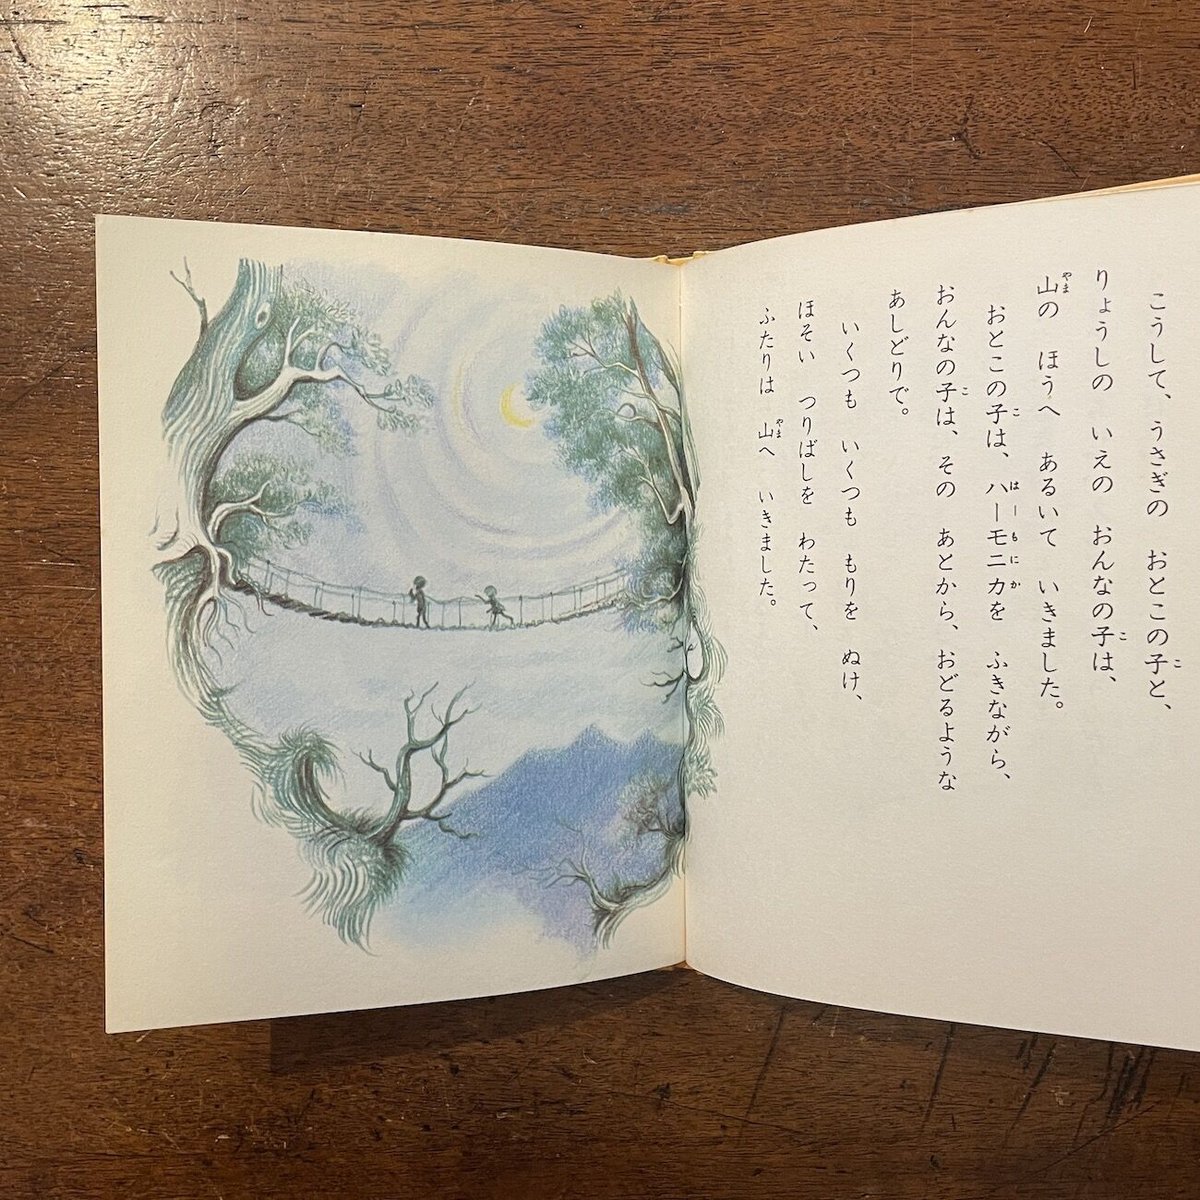 こうして、うさぎの　おとこの子と、
りょうしの　いえの　おんなの子は、
山の　ほうへ　あるいて　いきました。
おとこの子は、ハーモニカを　ふきながら、
おんなの子は、その　あとから、おどるような
あしどりで。
いくつも　いくつも　もりを　ぬけ、
ほそい　つりばしを　わたって、
ふたりは　山へ　いきました。